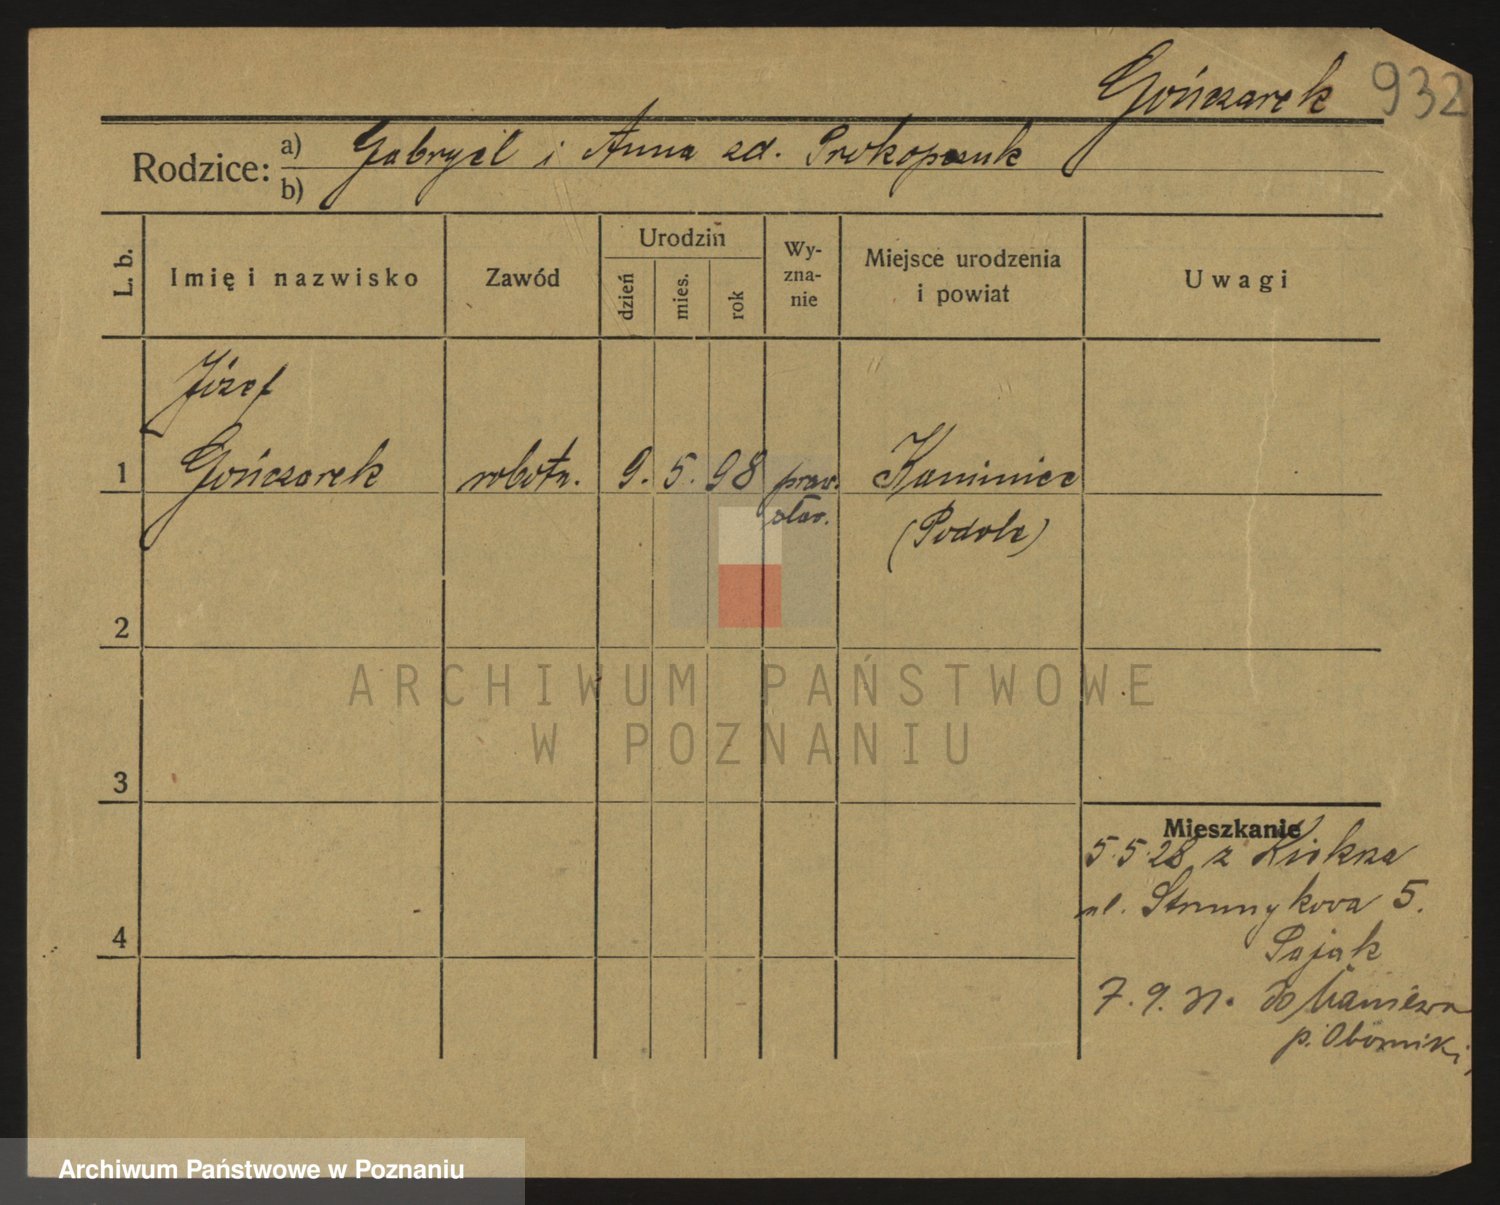 Gończarek 932
Rodzice: a) Gabryel i Anna zd. Prokopczuk
b)
L. b.
Imię i nazwisko
Zawód
Urodzin
dzień
mies.
rok
Wy-
zna-
nie
Miejsce urodzenia
i powiat
Uwagi
Józef
1 Gończarek robotn. 9. 5. 98 praw. Kaminiec
sław. (Podole)
2
3
4
Mieszkanie
5.5.28 z Kiekrza
ul. Strumykowa 5.
Pająk
7.9.31. do
p. Oborniki,
ARCHIWUM PAŃSTWOWE
W POZNANIU
Archiwum Państwowe w Poznaniu